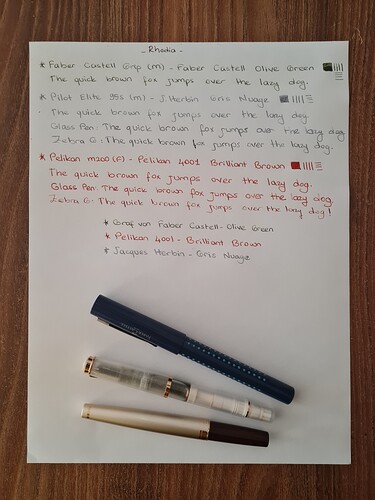 - Rhodia -
* Faber Castell Grip (M) - Faber Castell Olive Green
The quick brown fox jumps over the lazy dog.
* Pilot Elite 95s (M) - J.Herbin Gris Nuage
The quick brown fox jumps over the lazy dog
Glass Pen: The quick brown fox jumps over the lazy dog
Zebra G: The quick brown fox jumps over the lazy dog.
* Pelikan M200 (F) - Pelikan 4001 Brilliant Brown
The quick brown fox jumps over the lazy dog.
Glass Pen: The quick brown fox jumps over the lazy dog.
Zebra G: The quick brown fox jumps over the lazy dog!
* Graf von Faber Castell - Olive Green
* Pelikan 4001 - Brilliant Brown
* Jacques Herbin - Gris Nuage